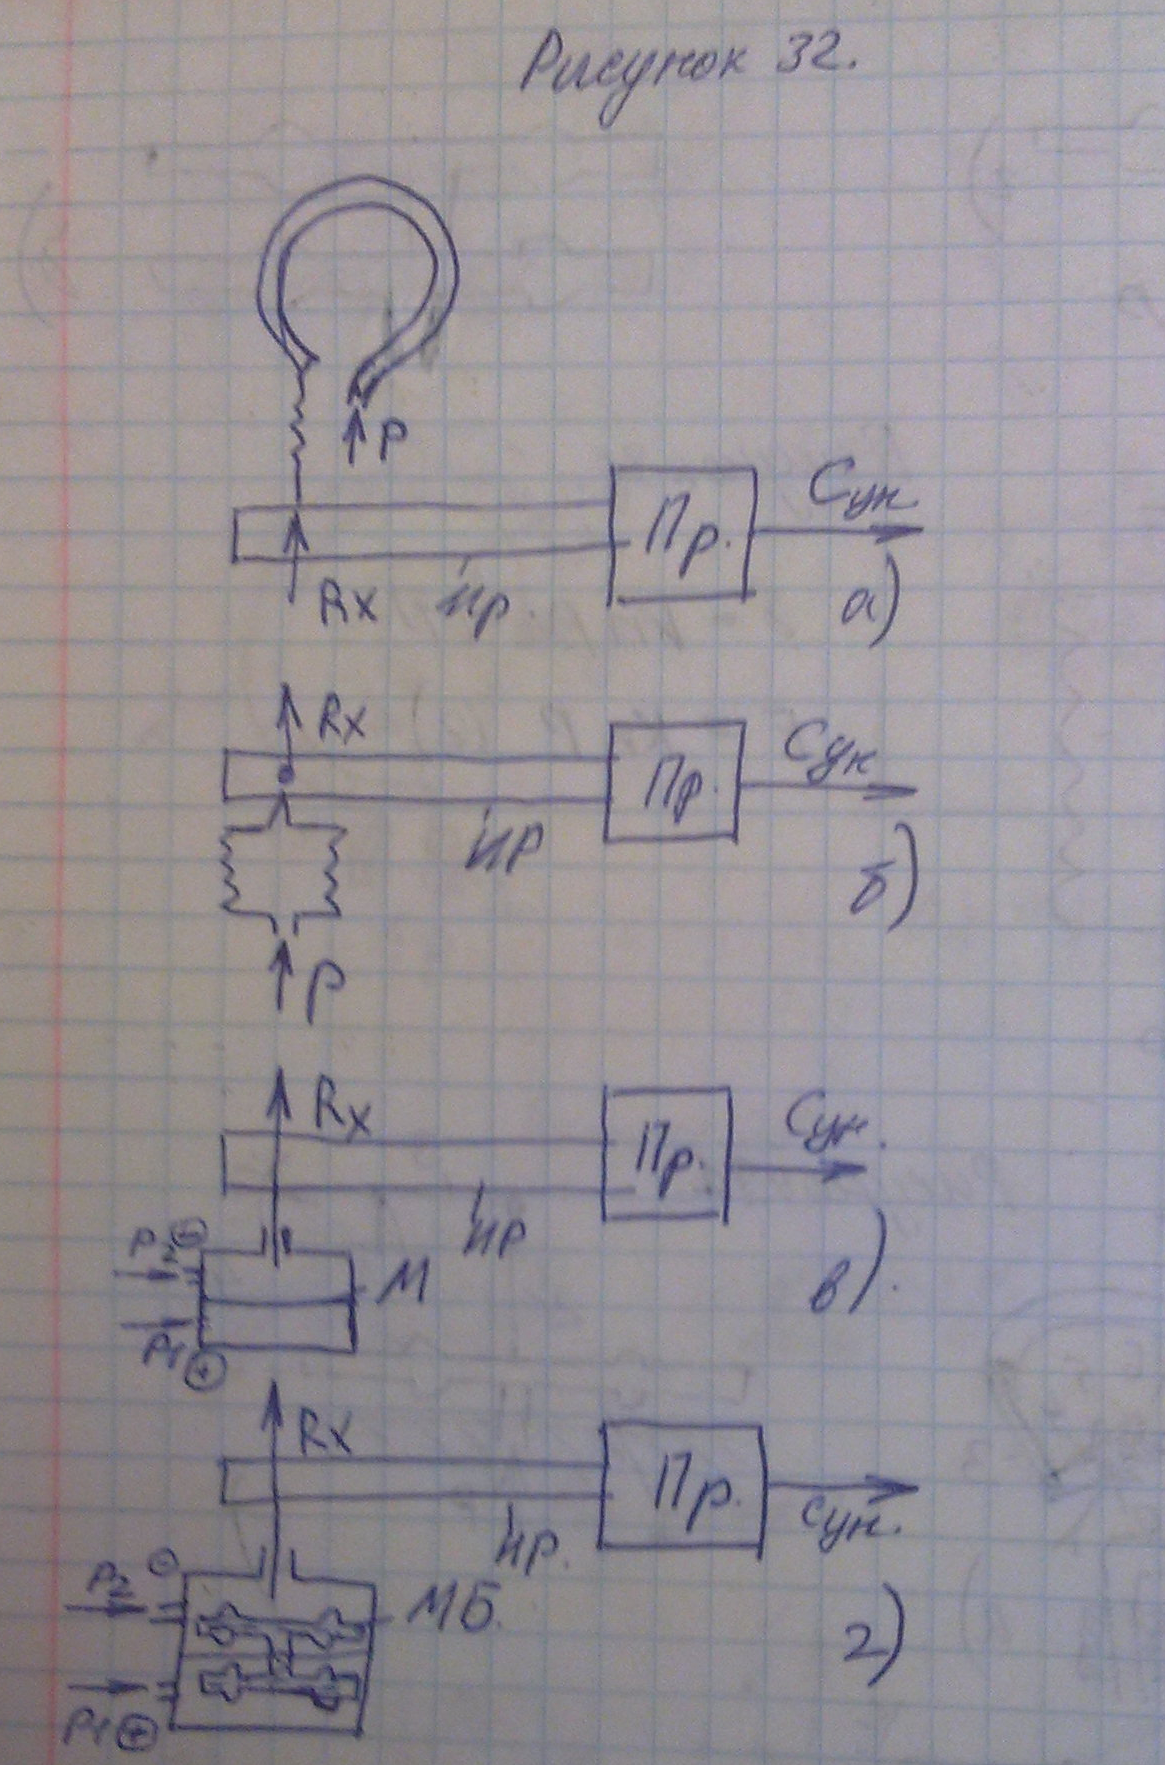 Рисунок 32.
P
Пр.
Сун.
Rx
ир
а)
Rx
Пр.
Сун
ир
б)
P
Rx
Пр.
Сун.
ир
P2 ⊖
М
в).
P1
⊕
Rx
Пр.
сун.
ир.
P2 ⊖
МБ.
г)
P1 ⊕